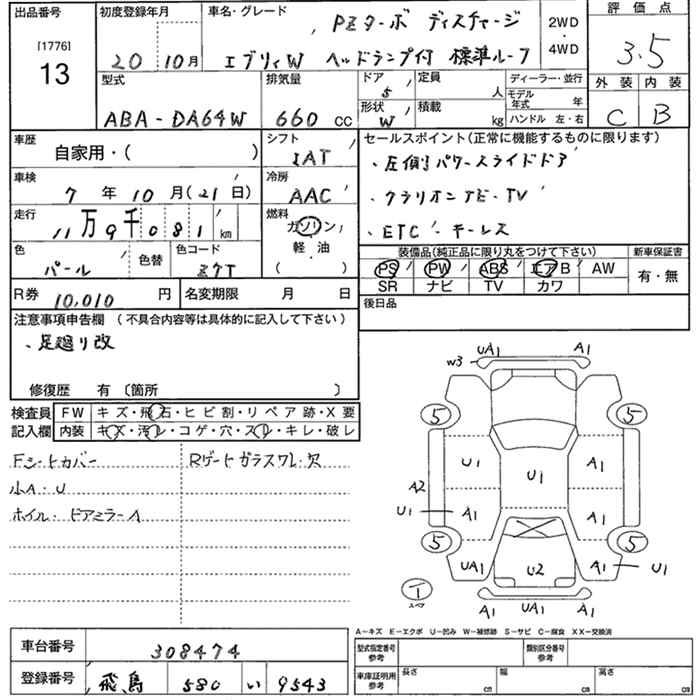 出品番号 初度登録年月 車名・グレード 評価点
[1776]
13
20 10月
PZターボ ディスチャージ
エブリィW ヘッドランプ付 標準ルーフ
2WD
・
4WD
3.5
型式 排気量 ドア 5 定員 人 ディーラー・並行 外装 内装
ABA-DA64W 660 cc
形状 W 積載 kg
モデル年式 年
ハンドル 左・右
C B
車歴 自家用・( )
シフト IAT
車検 7年10月(21日)
冷房 AAC
走行 11万9千081km
燃料 ガソリン 軽・油 ( )
色 パール 色替 色コード Z7T
R券 10,010円 名変期限 月 日
セールスポイント(正常に機能するものに限ります)
、左側パワースライドドア
、クラリオンナビ・TV
、ETC・キーレス
装備品(純正品に限り丸をつけて下さい) 新車保証書
PS PW ABS エアB AW 有・無
SR ナビ TV カワ
後日品
注意事項申告欄 (不具合内容等は具体的に記入して下さい)
、足廻り改
修復歴 有〔箇所 〕
検査員記入欄
FW キズ・飛石・ヒビ割・リペア跡・X要
内装 キズ・汚レ・コゲ・穴・スレ・キレ・破レ
Fシートカバー Rゲートガラスワレ・欠
小A・U
ホイル・ドアミラーA
W3 UA1 A1
5 5
U1 U1 A1
A2
U1 A1 A1
5 5
UA1 U2 A1 U1
T スペア
A1 UA1 A1
A-キズ E-エクボ U-凹み W-補修跡 S-サビ C-腐食 XX-交換済
車台番号 308474
登録番号 飛鳥 580 い 9543
型式指定番号 参考 類別区分番号 参考
車庫証明用 参考 長さ cm 幅 cm 高さ cm